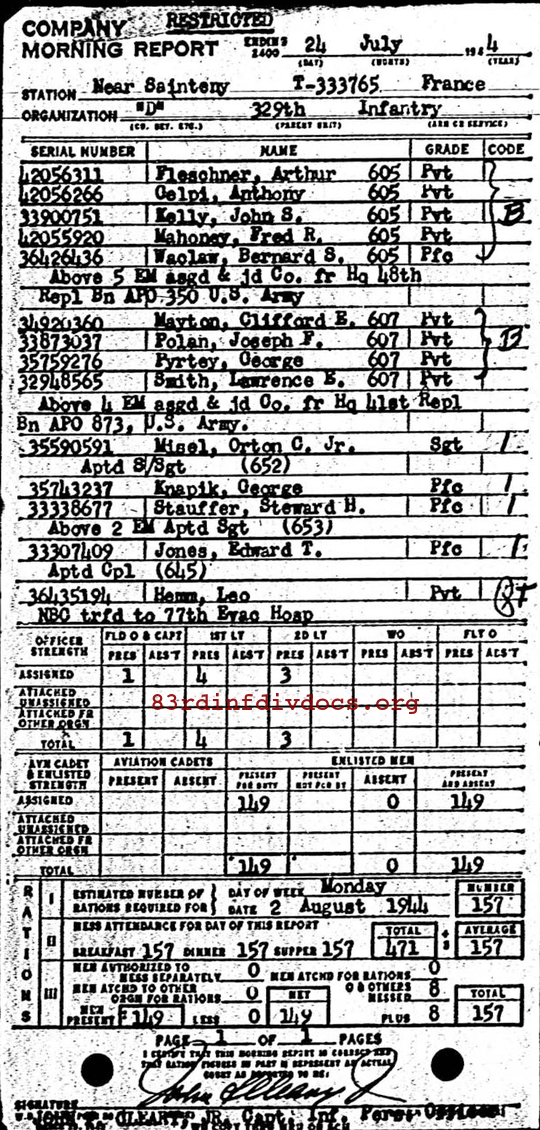 RESTRICTED
COMPANY
MORNING REPORT ENDING 2400 24 July 1944
(DAY) (MONTH) (YEAR)
STATION Near Sainteny T-333765 France
ORGANIZATION "D" 329th Infantry
(CO. DET. ETC.) (PARENT UNIT) (ARM OR SERVICE)
SERIAL NUMBER NAME GRADE CODE
42056311 Fleschner, Arthur 605 Pvt
42056266 Celpi, Anthony 605 Pvt
33900751 Kelly, John S. 605 Pvt B
42055920 Mahoney, Fred R. 605 Pvt
36426436 Waclaw, Bernard S. 605 Pfc
Above 5 EM asgd & jd Co. fr Hq 48th
Repl Bn APO 350 U.S. Army
34920360 Mayton, Clifford E. 607 Pvt
33873037 Polan, Joseph F. 607 Pvt B
35759276 Pyrtey, George 607 Pvt
32948565 Smith, Lawrence E. 607 Pvt
Above 4 EM asgd & jd Co. fr Hq 41st Repl
Bn APO 873, U.S. Army.
35590591 Misel, Orton C. Jr. Sgt 1
Aptd S/Sgt (652)
35743237 Knapik, George Pfc 1
33338677 Stauffer, Steward H. Pfc 1
Above 2 EM Aptd Sgt (653)
33307409 Jones, Edward T. Pfc 1
Aptd Cpl (645)
36435194 Hemm, Leo Pvt
NBC trfd to 77th Evac Hosp
OFFICER STRENGTH FLD O & CAPT 1ST LT 2D LT WO FLT O
PRES ABS'T PRES ABS'T PRES ABS'T PRES ABS'T PRES ABS'T
ASSIGNED 1 4 3
ATTACHED UNASSIGNED
83rdinfdivdocs.org
ATTACHED FR OTHER ORGN
TOTAL 1 4 3
AVN CADET & ENLISTED STRENGTH AVIATION CADETS ENLISTED MEN
PRESENT ABSENT PRESENT FOR DUTY PRESENT NOT FOR DY ABSENT PRESENT AND ABSENT
ASSIGNED 149 0 149
ATTACHED UNASSIGNED
ATTACHED FR OTHER ORGN
TOTAL 149 0 149
RATIONS
I ESTIMATED NUMBER OF RATIONS REQUIRED FOR DAY OF WEEK Monday NUMBER
DATE 2 August 1944 157
II MESS ATTENDANCE FOR DAY OF THIS REPORT TOTAL ÷ 3 AVERAGE
BREAKFAST 157 DINNER 157 SUPPER 157 471 157
III MEN AUTHORIZED TO MESS SEPARATELY 0 MEN ATCHD FOR RATIONS 0
MEN ATCHD TO OTHER ORGN FOR RATIONS 0 NET O & OTHERS MESSED 8 TOTAL
MEN PRESENT 149 LESS 0 149 PLUS 8 157
PAGE 1 OF 1 PAGES
I CERTIFY THAT THIS MORNING REPORT IS CORRECT AND
THAT RATION FIGURES IN PART III REPRESENT AN ACTUAL
COUNT AS REPORTED TO ME:
SIGNATURE
JOHN CLEARY, JR, Capt Inf, Pers Officer